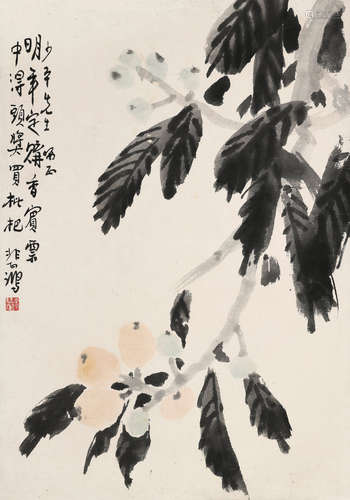 少平先生正
明年定購香賓票
中得頭獎買枇杷
悲鴻